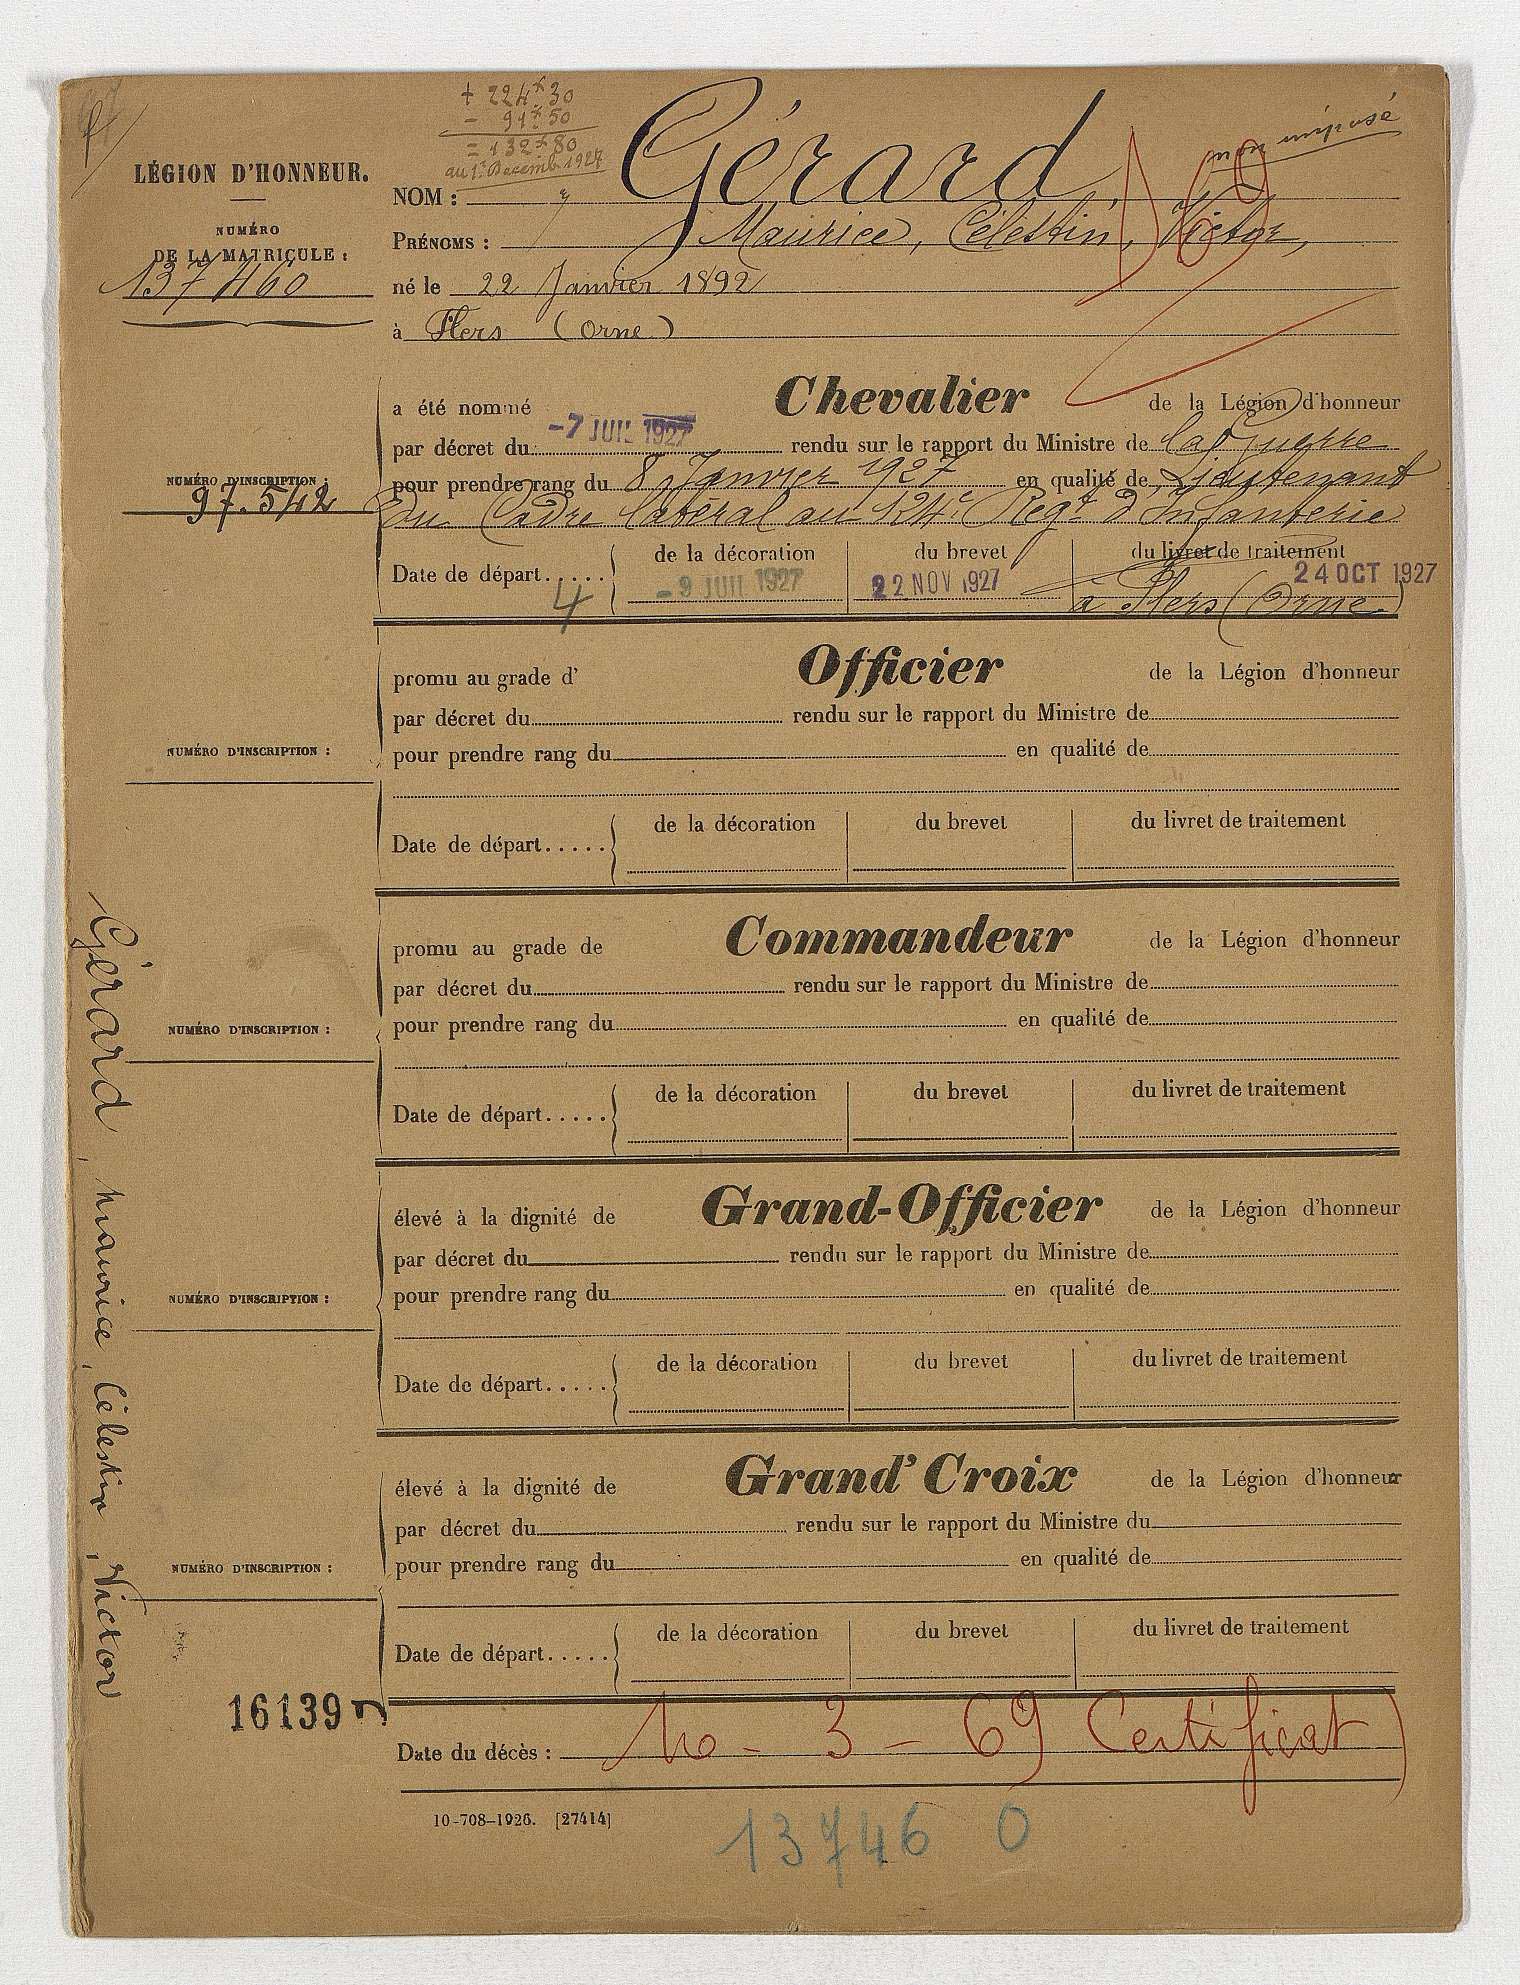 + 224 30
- 91 50
= 132 80
au 1er Décembre 1927
non imposé
LÉGION D'HONNEUR.
NUMÉRO
DE LA MATRICULE :
137460
NOM : Gérard
PRÉNOMS : Maurice, Célestin, Victor,
né le 22 Janvier 1892
à Flers (Orne)
D69
a été nommé Chevalier de la Légion d'honneur
par décret du -7 JUIL 1927 rendu sur le rapport du Ministre de la Guerre
NUMÉRO D'INSCRIPTION :
97.542
pour prendre rang du 8 Janvier 1927 en qualité de Lieutenant
du Cadre latéral au 124e Regt d'Infanterie
Date de départ..... de la décoration du brevet du livret de traitement
4 -9 JUIL 1927 22 NOV 1927 24 OCT 1927
à Flers (Orne)
promu au grade d' Officier de la Légion d'honneur
par décret du rendu sur le rapport du Ministre de
NUMÉRO D'INSCRIPTION :
pour prendre rang du en qualité de
Date de départ..... de la décoration du brevet du livret de traitement
promu au grade de Commandeur de la Légion d'honneur
par décret du rendu sur le rapport du Ministre de
NUMÉRO D'INSCRIPTION :
pour prendre rang du en qualité de
Date de départ..... de la décoration du brevet du livret de traitement
élevé à la dignité de Grand-Officier de la Légion d'honneur
par décret du rendu sur le rapport du Ministre de
NUMÉRO D'INSCRIPTION :
pour prendre rang du en qualité de
Date de départ..... de la décoration du brevet du livret de traitement
élevé à la dignité de Grand'Croix de la Légion d'honneur
par décret du rendu sur le rapport du Ministre du
NUMÉRO D'INSCRIPTION :
pour prendre rang du en qualité de
Date de départ..... de la décoration du brevet du livret de traitement
Gérard, Maurice, Célestin, Victor
16139
Date du décès : 10 - 3 - 69 Certificat)
10-708-1926. [27414]
13746 0